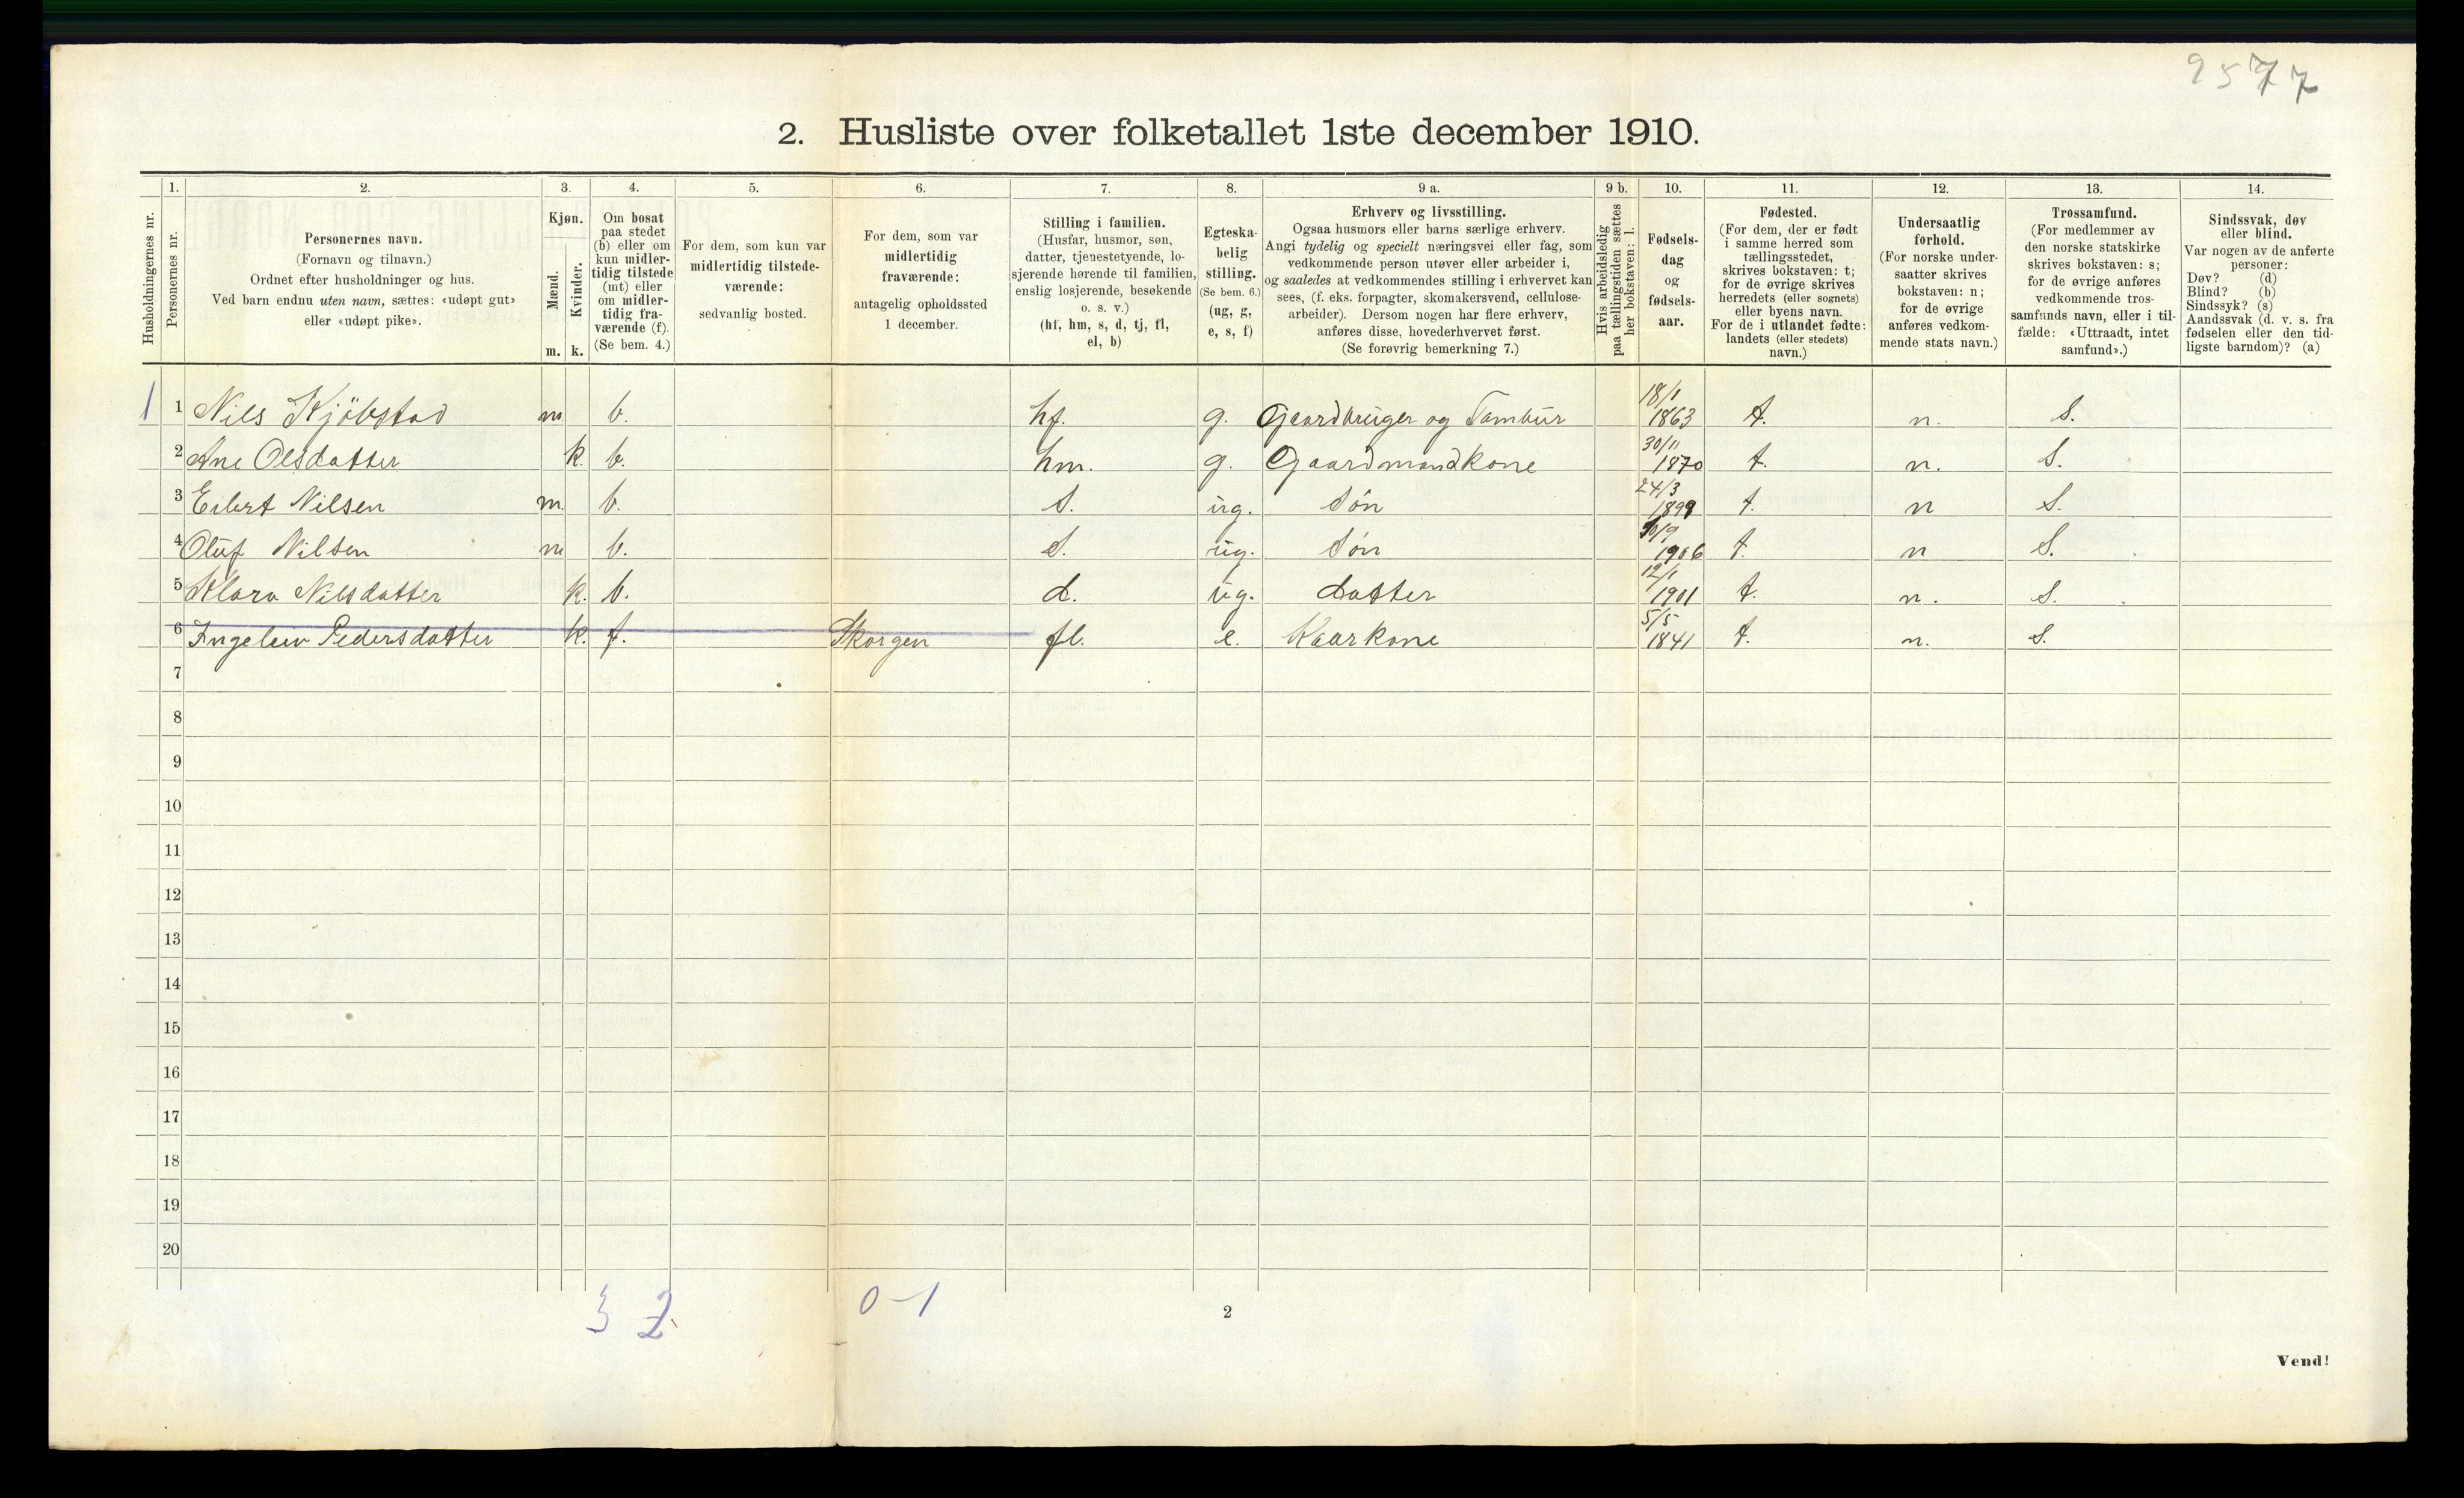 9577
2. Husliste over folketallet 1ste december 1910.
Husholdningernes nr.
1.
Personernes nr.
2.
Personernes navn.
(Fornavn og tilnavn.)
Ordnet efter husholdninger og hus.
Ved barn endnu uten navn, sættes: «udøpt gut»
eller «udøpt pike».
3.
Kjøn.
Mænd.
Kvinder.
m. k.
4.
Om bosat
paa stedet
(b) eller om
kun midler-
tidig tilstede
(mt) eller
om midler-
tidig fra-
værende (f).
(Se bem. 4.)
5.
For dem, som kun var
midlertidig tilstede-
værende:
sedvanlig bosted.
6.
For dem, som var
midlertidig
fraværende:
antagelig opholdssted
1 december.
7.
Stilling i familien.
(Husfar, husmor, søn,
datter, tjenestetyende, lo-
sjerende hørende til familien,
enslig losjerende, besøkende
o. s. v.)
(hf, hm, s, d, tj, fl,
el, b)
8.
Egteska-
belig
stilling.
(Se bem. 6.)
(ug, g,
e, s, f)
9 a.
Erhverv og livsstilling.
Ogsaa husmors eller barns særlige erhverv.
Angi tydelig og specielt næringsvei eller fag, som
vedkommende person utøver eller arbeider i,
og saaledes at vedkommendes stilling i erhvervet kan
sees, (f. eks. forpagter, skomakersvend, cellulose-
arbeider). Dersom nogen har flere erhverv,
anføres disse, hovederhvervet først.
(Se forøvrig bemerkning 7.)
9 b.
Hvis arbeidsledig
paa tællingstiden sættes
her bokstaven: l.
10.
Fødsels-
dag
og
fødsels-
aar.
11.
Fødested.
(For dem, der er født
i samme herred som
tællingsstedet,
skrives bokstaven: t;
for de øvrige skrives
herredets (eller sognets)
eller byens navn.
For de i utlandet fødte:
landets (eller stedets)
navn.)
12.
Undersaatlig
forhold.
(For norske under-
saatter skrives
bokstaven: n;
for de øvrige
anføres vedkom-
mende stats navn.)
13.
Trossamfund.
(For medlemmer av
den norske statskirke
skrives bokstaven: s;
for de øvrige anføres
vedkommende tros-
samfunds navn, eller i til-
fælde: «Uttraadt, intet
samfund».)
14.
Sindssvak, døv
eller blind.
Var nogen av de anførte
personer:
Døv? (d)
Blind? (b)
Sindssyk? (s)
Aandssvak (d. v. s. fra
fødselen eller den tid-
ligste barndom)? (a)
1 1 Nils Kjöbstad m b. hf. g. Gaardbruger og Tambur 18/1 1863 t. n. S.
2 Ane Olsdatter k. b. hm. g. Gaardmandkone 30/11 1870 t. n. S.
3 Eilert Nilsen m. b. S. ug. Søn 24/3 1898 t. n S.
4 Oluf Nilsen m b. S. ug. Søn 10/9 1906 t. n S.
5 Klara Nilsdatter k. b. d. ug. datter 12/1 1901 t. n. S.
6 Ingeleiv Pedersdatter k. f. Skorgen fl. e. Kaarkone 5/5 1841 t. n. S.
7
8
9
10
11
12
13
14
15
16
17
18
19
20
3 2 0-1
2
Vend!